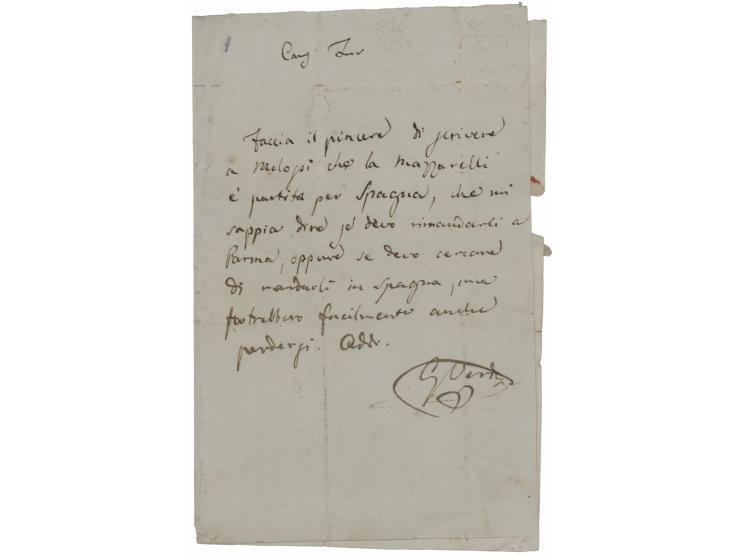 Faccia il piacere di scrivere
a che la Mazzarelli
è partita per Spagna, che mi
sappia dire se devo rimandarli a
Parma, oppure se devo cercare
di mandarli in Spagna, ma
potrebbero facilmente anche
perdersi. Addio.
G Verdi